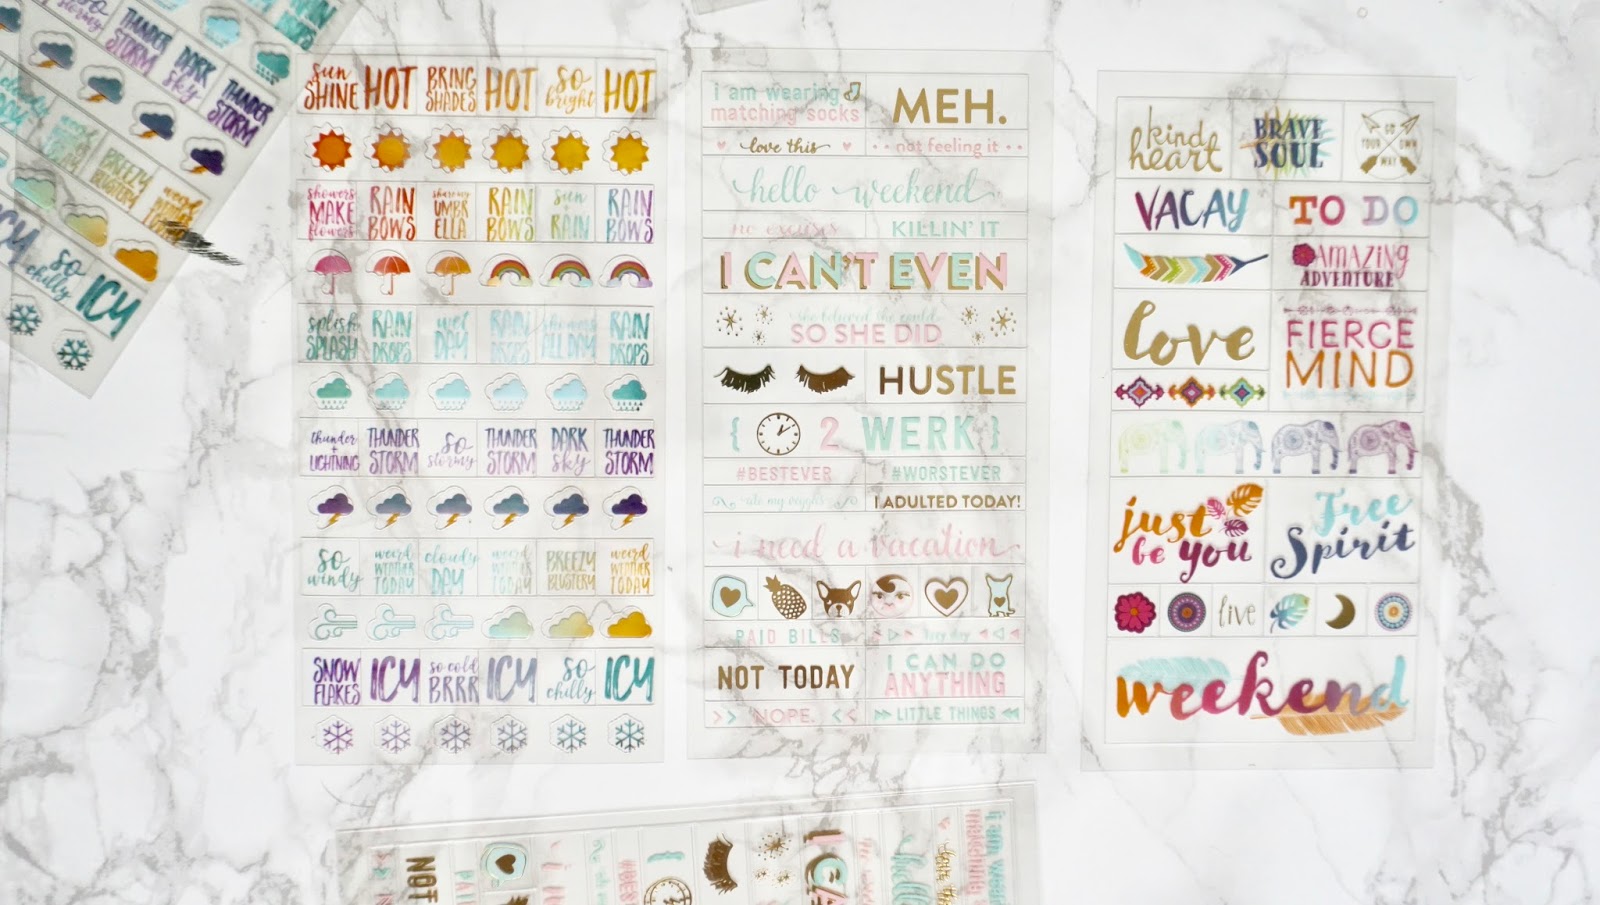 STORMY
RAIN
THUNDER
STORM
DARK
sky
THUNDER
STORM
cloudy
BREEZY
BLUSTERY
weird
WEATHER
TODAY
ICY
so
chilly
ICY
sun
SHINE
HOT
BRING
SHADES
HOT
so
bright
HOT
showers
MAKE
flowers
RAIN
BOWS
share my
UMBR
ELLA
RAIN
BOWS
sun
RAIN
RAIN
BOWS
splish
SPLASH
RAIN
DROPS
wet
DAY
RAIN
DROPS
showers
ALL DAY
RAIN
DROPS
thunder
+
LIGHTNING
THUNDER
STORM
so
stormy
THUNDER
STORM
DARK
sky
THUNDER
STORM
so
windy
weird
WEATHER
TODAY
cloudy
DAY
weird
WEATHER
TODAY
BREEZY
BLUSTERY
weird
WEATHER
TODAY
SNOW
FLAKES
ICY
so cold
BRRR
ICY
so
chilly
ICY
i am wearing
matching socks
MEH.
love this
not feeling it
hello weekend
no excuses
KILLIN' IT
I CAN'T EVEN
she believed she could
SO SHE DID
HUSTLE
{ 2 WERK }
#BESTEVER
#WORSTEVER
ate my veggies
I ADULTED TODAY!
i need a vacation
PAID BILLS
NOT TODAY
I CAN DO
ANYTHING
>> NOPE. <<
LITTLE THINGS
kind
heart
BRAVE
SOUL
GO
YOUR OWN
WAY
VACAY
TO DO
AMAZING
ADVENTURE
love
FIERCE
MIND
just
be you
Free
Spirit
live
weekend
NOT
PAID
#BES
i am wearing
matching